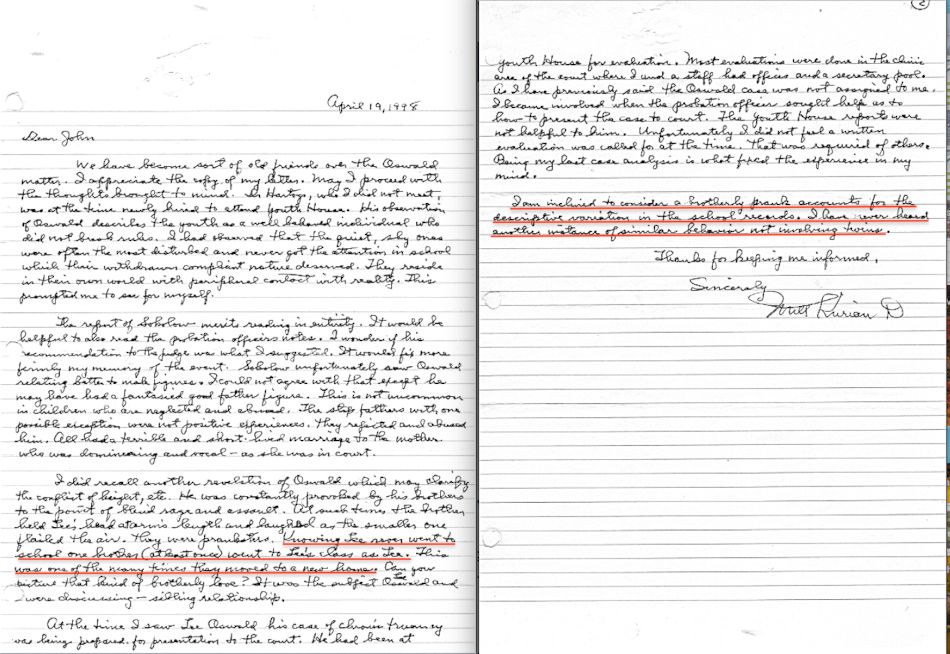 April 19, 1998
Dear John
We have become sort of old friends over the Oswald
matter. I appreciate the copy of my letter. May I proceed with
the thoughts brought to mind. Dr Hartogs, who I did not meet,
was at the time newly hired to attend Youth House. His observation
of Oswald describes the youth as a well behaved individual who
did not break rules. I had observed that the quiet, shy ones
were often the most disturbed and never got the attention in school
which their withdrawn compliant nature deserved. They reside
in their own world with peripheral contact with reality. This
prompted me to see for myself.
The report of Sokolow merits reading in entirety. It would be
helpful to also read the probation officers notes. I wonder if his
recommendation to the judge was what I suggested. It would fix more
firmly my memory of the event. Sokolow unfortunately saw Oswald
relating better to male figures. I could not agree with that except he
may have had a fantasied good father figure. This is not uncommon
in children who are neglected and abused. The step fathers with one
possible exception were not positive experiences. They rejected and abused
him. All had a terrible and short-lived marriage to the mother
who was domineering and vocal - as she was in court.
I did recall another revelation of Oswald which may clarify
the conflict of height, etc. He was constantly provoked by his brothers
to the point of blind rage and assault. At such times the brother
held Lee's head at arm's length and laughed as the smaller one
flailed the air. They were pranksters. Knowing Lee never went to
school one brother (at least once) went to Lee's class as Lee. This
was one of the many times they moved to a new home. Can you
picture that kind of brotherly love? It was the subject Lee Oswald and
I were discussing - sibling relationship.
At the time I saw Lee Oswald his case of chronic truancy
was being prepared for presentation to the court. He had been at
2
Youth House for evaluation. Most evaluations were done in the clinic
area of the court where I and a staff had offices and a secretary pool.
As I have previously said the Oswald case was not assigned to me.
I became involved when the probation officer sought help as to
how to present the case to court. The Youth House reports were
not helpful to him. Unfortunately I did not feel a written
evaluation was called for at the time. That was required of others.
Being my last case analysis is what fixed the experience in my
mind.
I am inclined to consider a brotherly prank accounts for the
descriptive variation in the school records. I have never heard
another instance of similar behavior not involving twins.
Thanks for keeping me informed.
Sincerely